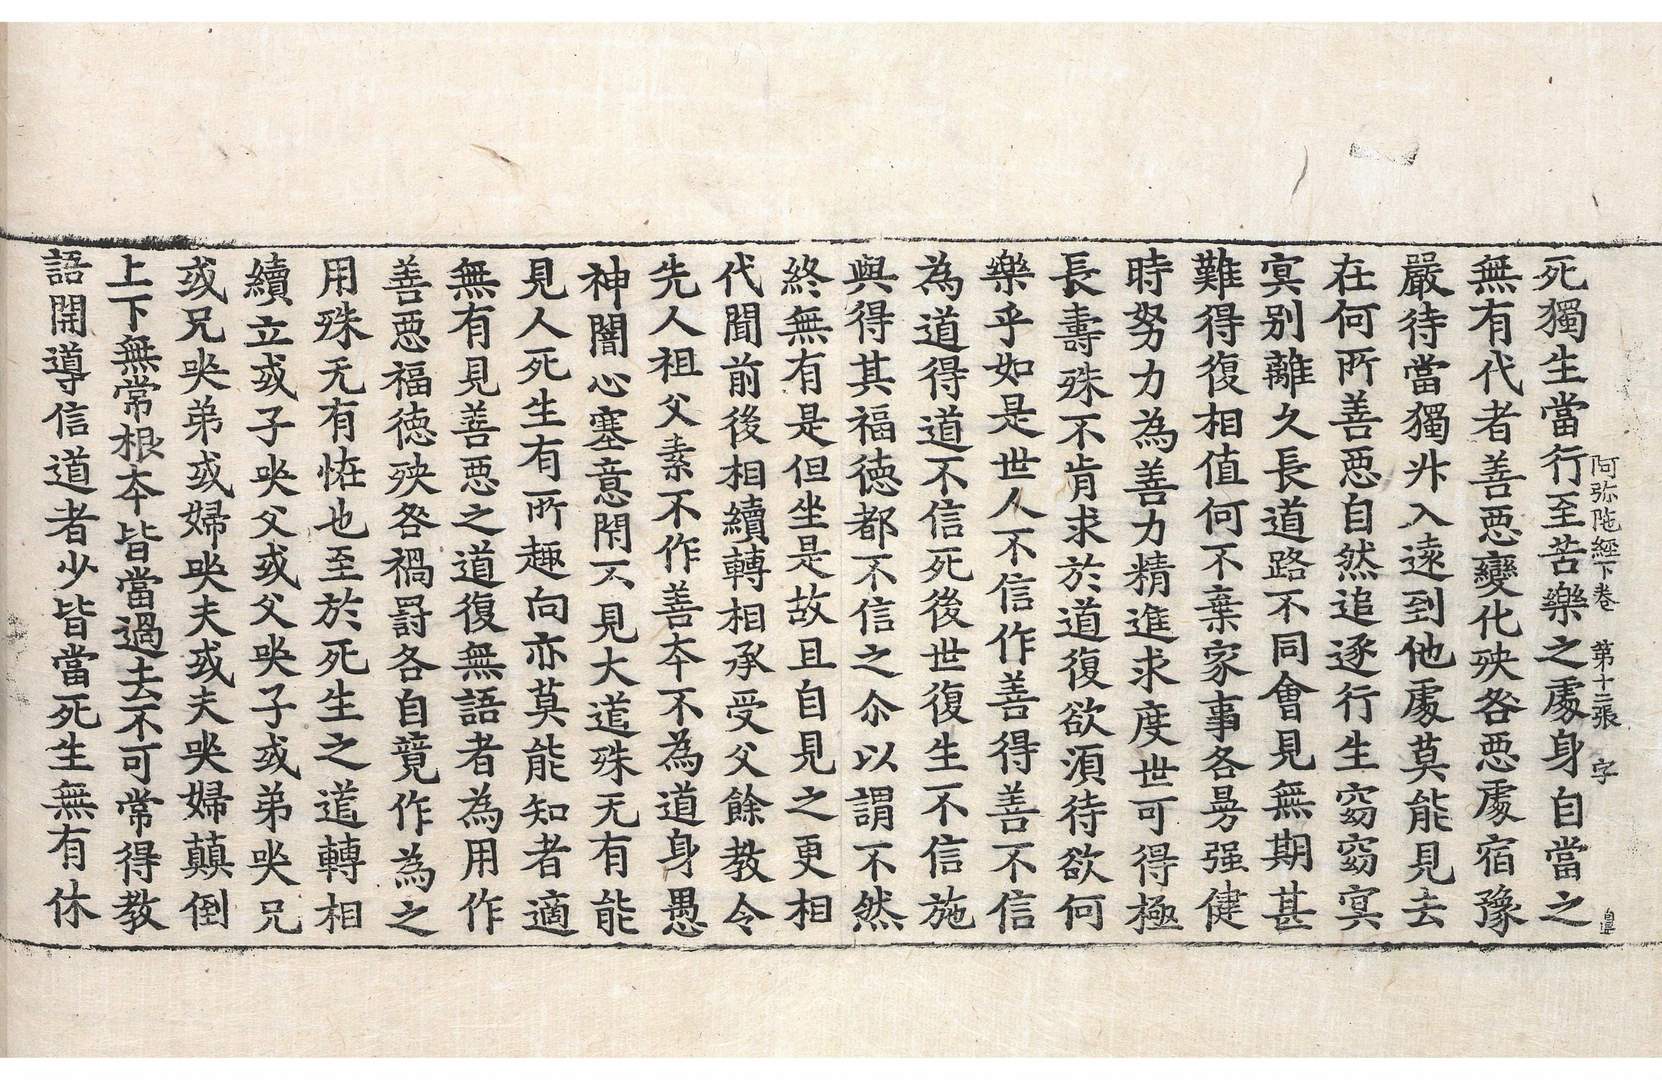 阿弥陁經下卷 第十二張 字
死獨生當行至苦樂之處身自當之
無有代者善惡變化殃咎惡處宿豫
嚴待當獨升入遠到他處莫能見去
在何所善惡自然追逐行生窈窈冥
冥別離久長道路不同會見無期甚
難得復相值何不棄家事各曼强健
時努力為善力精進求度世可得極
長壽殊不肯求於道復欲湏待欲何
樂乎如是世人不信作善得善不信
為道得道不信死後世復生不信施
與得其福德都不信之尒以謂不然
終無有是但坐是故且自見之更相
代聞前後相續轉相承受父餘教令
先人祖父素不作善夲不為道身愚
神闇心塞意閇不見大道殊无有能
見人死生有所趣向亦莫能知者適
無有見善惡之道復無語者為用作
善惡福德殃咎禍罸各自竟作為之
用殊无有恠也至於死生之道轉相
續立或子哭父或父哭子或弟哭兄
或兄哭弟或婦哭夫或夫哭婦顛倒
上下無常根夲皆當過去不可常得教
語開導信道者少皆當死生無有休